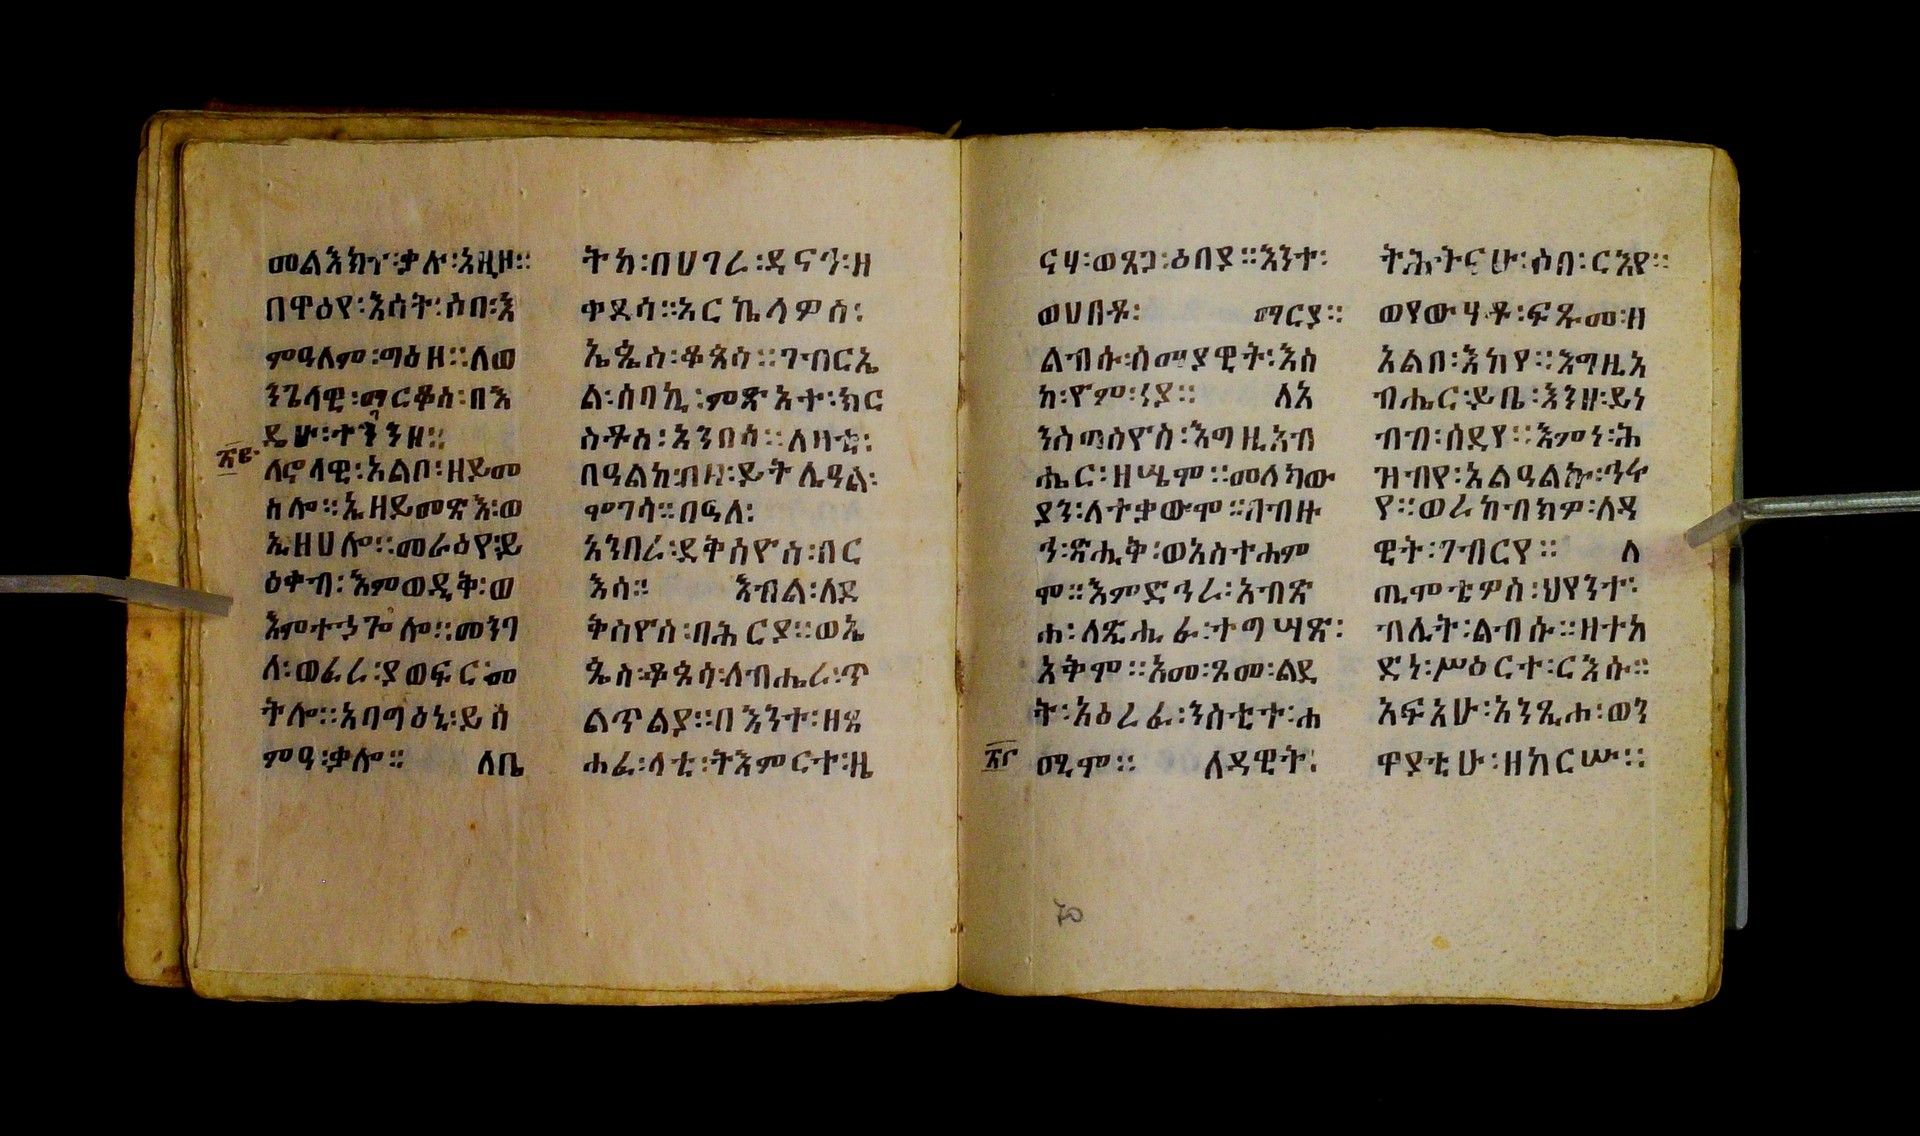 መልእክተ፡ቃሉ፡አዚዞ።
በዋዕየ፡እሳት፡ሶበ፡እ
ምዓለም፡ግዕዘ።ለወ
ንጌላዊ፡ማርቆስ፡በእ
ዴሁ፡ተገንዘ።
ለኖላዊ፡አልቦ፡ዘይመ
ስሎ።ኢዘይመጽእ፡ወ
ኢዘሀሎ።መራዕየ፡ይ
ዕቀብ፡እምወዲቅ፡ወ
እምተኃጕሎ።መንገ
ለ፡ወፈረ፡ያወፍር፡መ
ትሎ።አባግዕኒ፡ይሰ
ምዓ፡ቃሎ። ለቤ
ትከ፡በሀገረ፡ዳናን፡ዘ
ቀደሳ።አርኬላዎስ፡
ኤጲስ፡ቆጶሳ።ገብርኤ
ል፡ሰባኪ፡ምጽአተ፡ክር
ስቶስ፡አንበሳ።ለዛቲ፡
በዓልከ፡በዛ፡ይትሌዓል፡
ሞገሳ።በዓለ፡
አንበረ፡ደቅስዮስ፡በር
እሳ። እብል፡ለደ
ቅስዮስ፡በሕርያ።ወኤ
ጲስ፡ቆጶሳ፡ለብሔረ፡ጥ
ልጥልያ።በእንተ፡ዘጸ
ሐፈ፡ላቲ፡ትእምርተ፡ዜ
ናሃ፡ወጸጋ፡ዕበያ።እንተ፡
ወሀበቶ፡ ማርያ።
ልብሱ፡ሰማያዊት፡እስ
ከ፡ዮም፡ነያ። ለአ
ንስጣስዮስ፡እግዚአብ
ሔር፡ዘሤሞ።መለካው
ያን፡ለተቃውሞ።ገብዙ
ኀ፡ጽሒቅ፡ወአስተሐም
ሞ።እምድኅረ፡አብጽ
ሐ፡ለጺሒፉ፡ተግሣጽ፡
አቅም።አመ፡ጾመ፡ልደ
ት፡አዕረፈ፡ንስቲተ፡ሐ
ሚሞ። ለዳዊት፡
ትሕትናሁ፡ሶበ፡ርእየ።
ወየውሃቶ፡ፍጹመ፡ዘ
አልቦ፡እከየ።እግዚአ
ብሔር፡ይቤ፡እንዘ፡ይነ
ብብ፡ሰደየ።እምነ፡ሕ
ዝብየ፡አልዓልኩ፡ኅሩ
የ።ወረከብክዎ፡ለዳ
ዊት፡ገብርየ። ለ
ጢሞቴዎስ፡ህየንተ፡
ብሊት፡ልብሱ።ዘተከ
ድነ፡ሥዕርተ፡ርእሱ።
አፍአሁ፡አንጺሖ፡ወን
ዋያቲሁ፡ዘከርሡ።
70